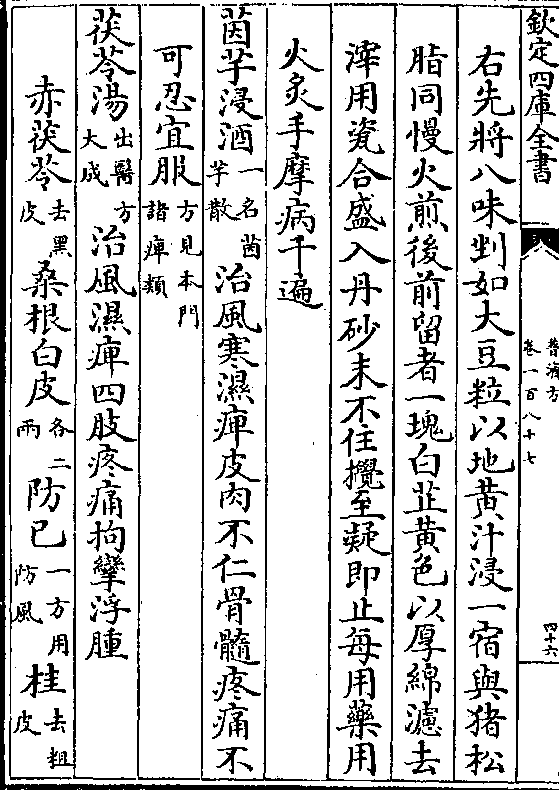 欽定四庫全書
普濟方
卷一百八十七
四十六
右先將八味剉如大豆粒以地黄汁浸一宿與猪松
脂同慢火煎後前留者一塊白芷黄色以厚綿濾去
滓用瓷合盛入丹砂末不住攪至凝即止每用藥用
火炙手摩病千遍
茵芋浸酒一名茵芋散治風寒濕痺皮肉不仁骨髓疼痛不
可忍宜服方見本門諸痺類
茯苓湯出醫方大成治風濕痺四肢疼痛拘攣浮腫
赤茯苓去黑皮桑根白皮各二兩防已一方用防風桂去粗皮